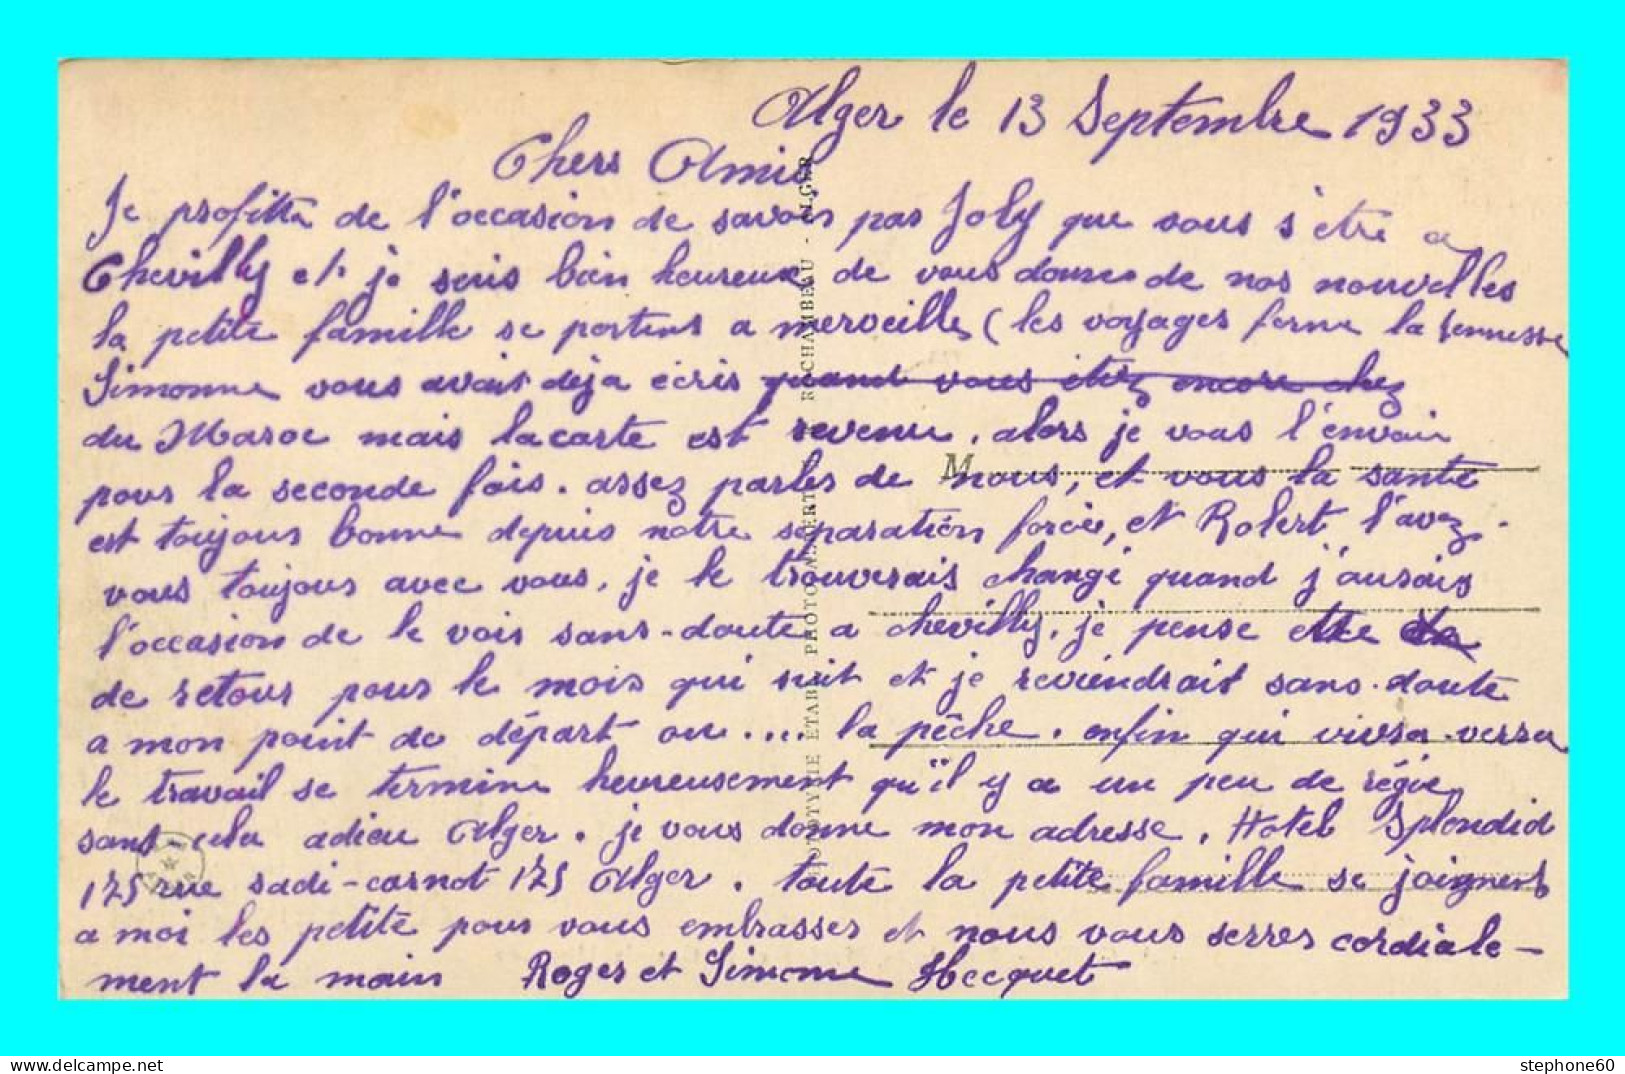 Alger le 13 Septembre 1933
Chers Amis
Je profitta de l'occasion de savoir par Joly que vous s'être a
Chevilly et je suis bien heureux de vous donner de nos nouvelles
la petite famille se portens a merveille, (les voyages forme la Jennesse
Simonne vous avait deja ecris quand vous etiez encore chez
du Maroc mais la carte est revenu, alors je vous l'envoir
pour la seconde fois. assez parler de nous, et vous la santé
est toujours bonne depuis notre separation forcée, et Robert l'avez
vous toujours avec vous, je le trouverais changé quand j'aurais
l'occasion de le voir sans-doute a chevilly, je pense etre
de retour pour le mois qui suit et je reviendrait sans-doute
a mon point de départ ou .... la pêche. enfin qui vivra-verra
le travail se termine heureusement qu'il y a un peu de régie
sans cela adieu Alger. je vous donne mon adresse. Hotel Splendid
125 rue sadi-carnot 125 Alger. toute la petite famille se joignent
a moi les petite pour vous embrasser et nous vous serrer cordiale-
ment la main Roger et Simonne Hecquet
M
PHOTOTYPIE ETABL PHOTO ALBERT ROCHAMBEAU - ALGER
stephone60